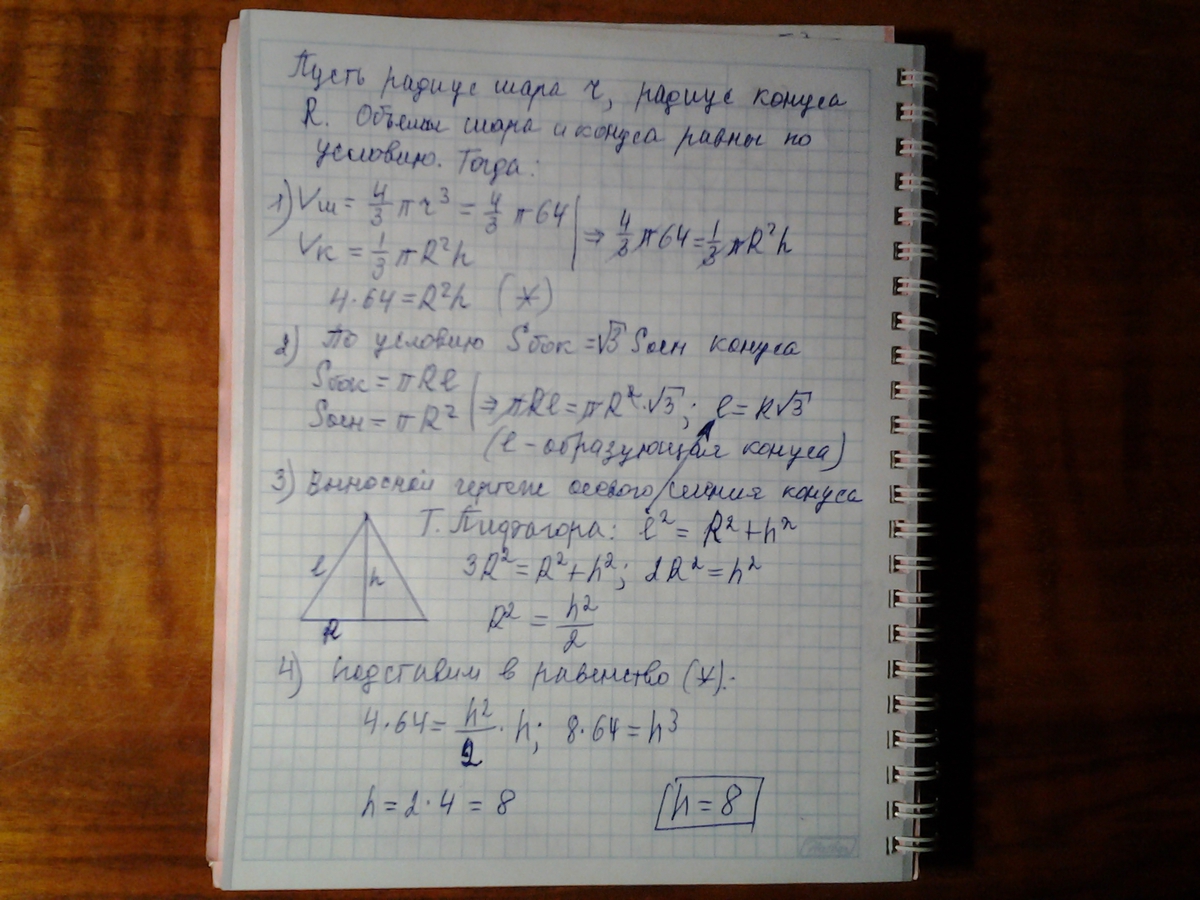 Пусть радиус шара r, радиус конуса
R. Объемы шара и конуса равны по
условию. Тогда:
1) Vш = 4/3 πr³ = 4/3 π64 | ⇒ 4/3 π64 = 1/3 πR²h
Vк = 1/3 πR²h
4·64 = R²h (*)
2) По условию Sбок = √3 Sосн конуса
Sбок = πRl
Sосн = πR² | ⇒ πRl = πR²·√3; l = R√3
(l – образующая конуса)
3) Выносной чертеж осевого сечения конуса
Т. Пифагора: l² = R² + h²
3R² = R² + h²; 2R² = h²
R² = h²/2
l
h
R
4) Подставим в равенство (*):
4·64 = h²/2 · h; 8·64 = h³
h = 2·4 = 8
h = 8